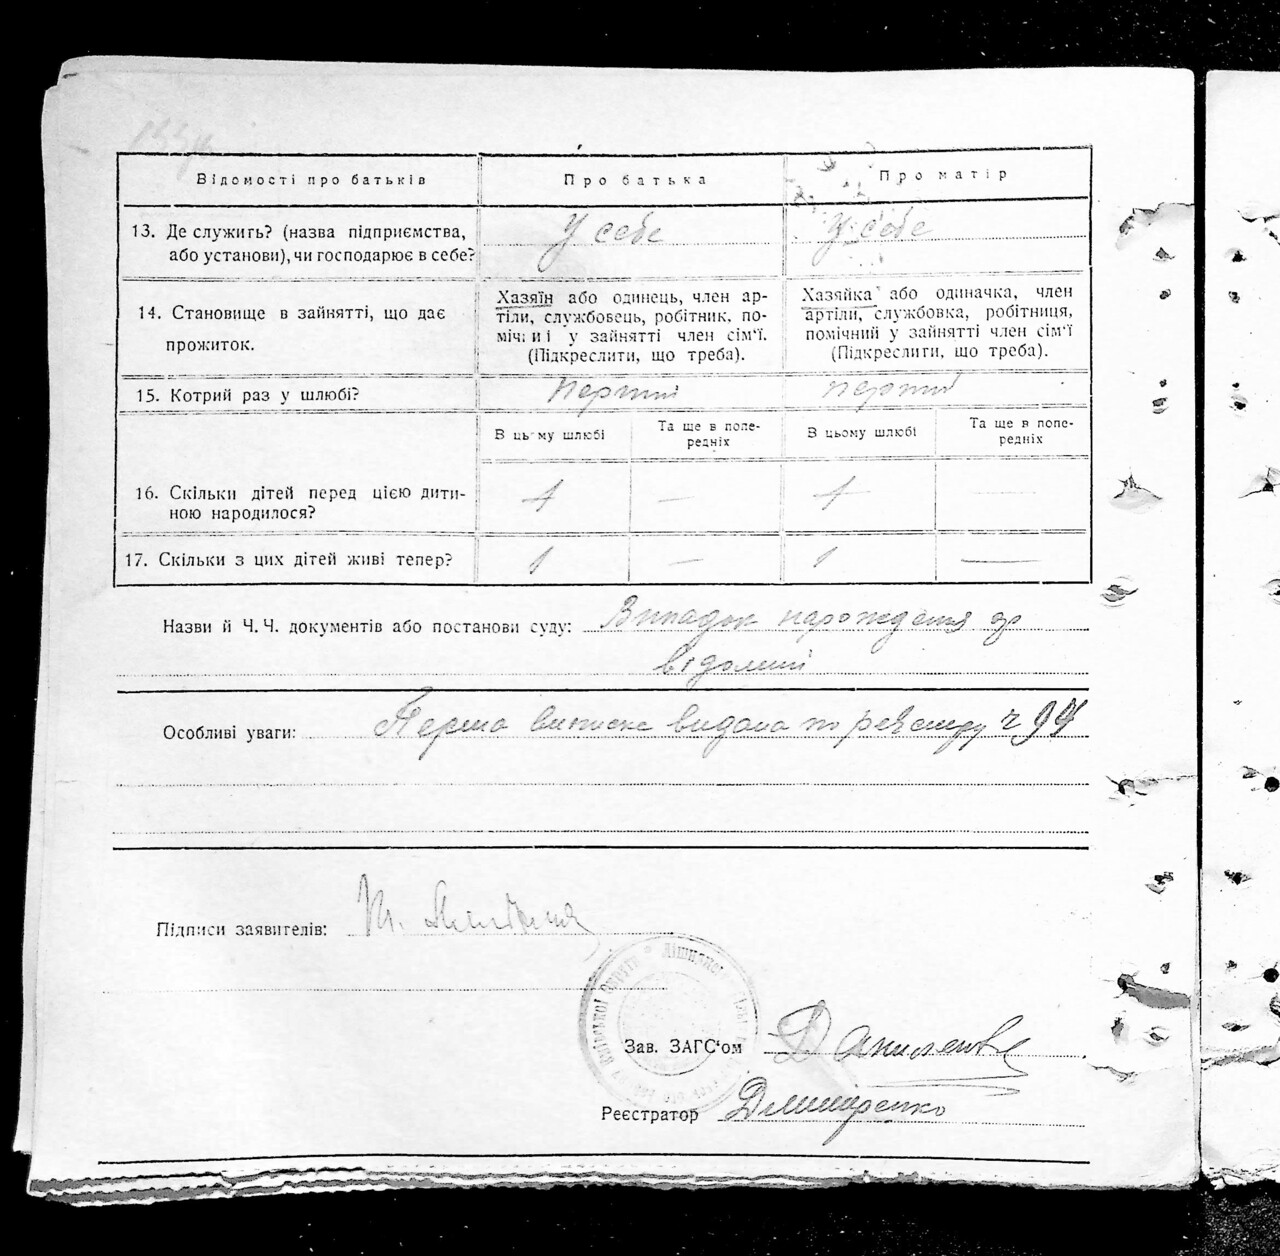 Відомості про батьків
Про батька
Про матір
13. Де служить? (назва підприємства,
або установи), чи господарює в себе?
У себе
У себе
14. Становище в зайнятті, що дає
прожиток.
Хазяїн або одинець, член ар-
тіли, службовець, робітник, по-
мічний у зайнятті член сім'ї.
(Підкреслити, що треба).
Хазяйка або одиначка, член
артіли, службовка, робітниця,
помічний у зайнятті член сім'ї
(Підкреслити, що треба).
15. Котрий раз у шлюбі?
перший
перший
В цьому шлюбі
Та ще в попе-
редніх
В цьому шлюбі
Та ще в попе-
редніх
16. Скільки дітей перед цією дити-
ною народилося?
1
—
1
—
17. Скільки з цих дітей живі тепер?
1
—
1
—
Назви й Ч. Ч. документів або постанови суду: Випадок нарождення
відомий
Особливі уваги: Перша виписка видана по реєстру ч 94
Підписи заявителів:
Київської Округи
Зав. ЗАГС'ом
Реєстратор Дмитренко